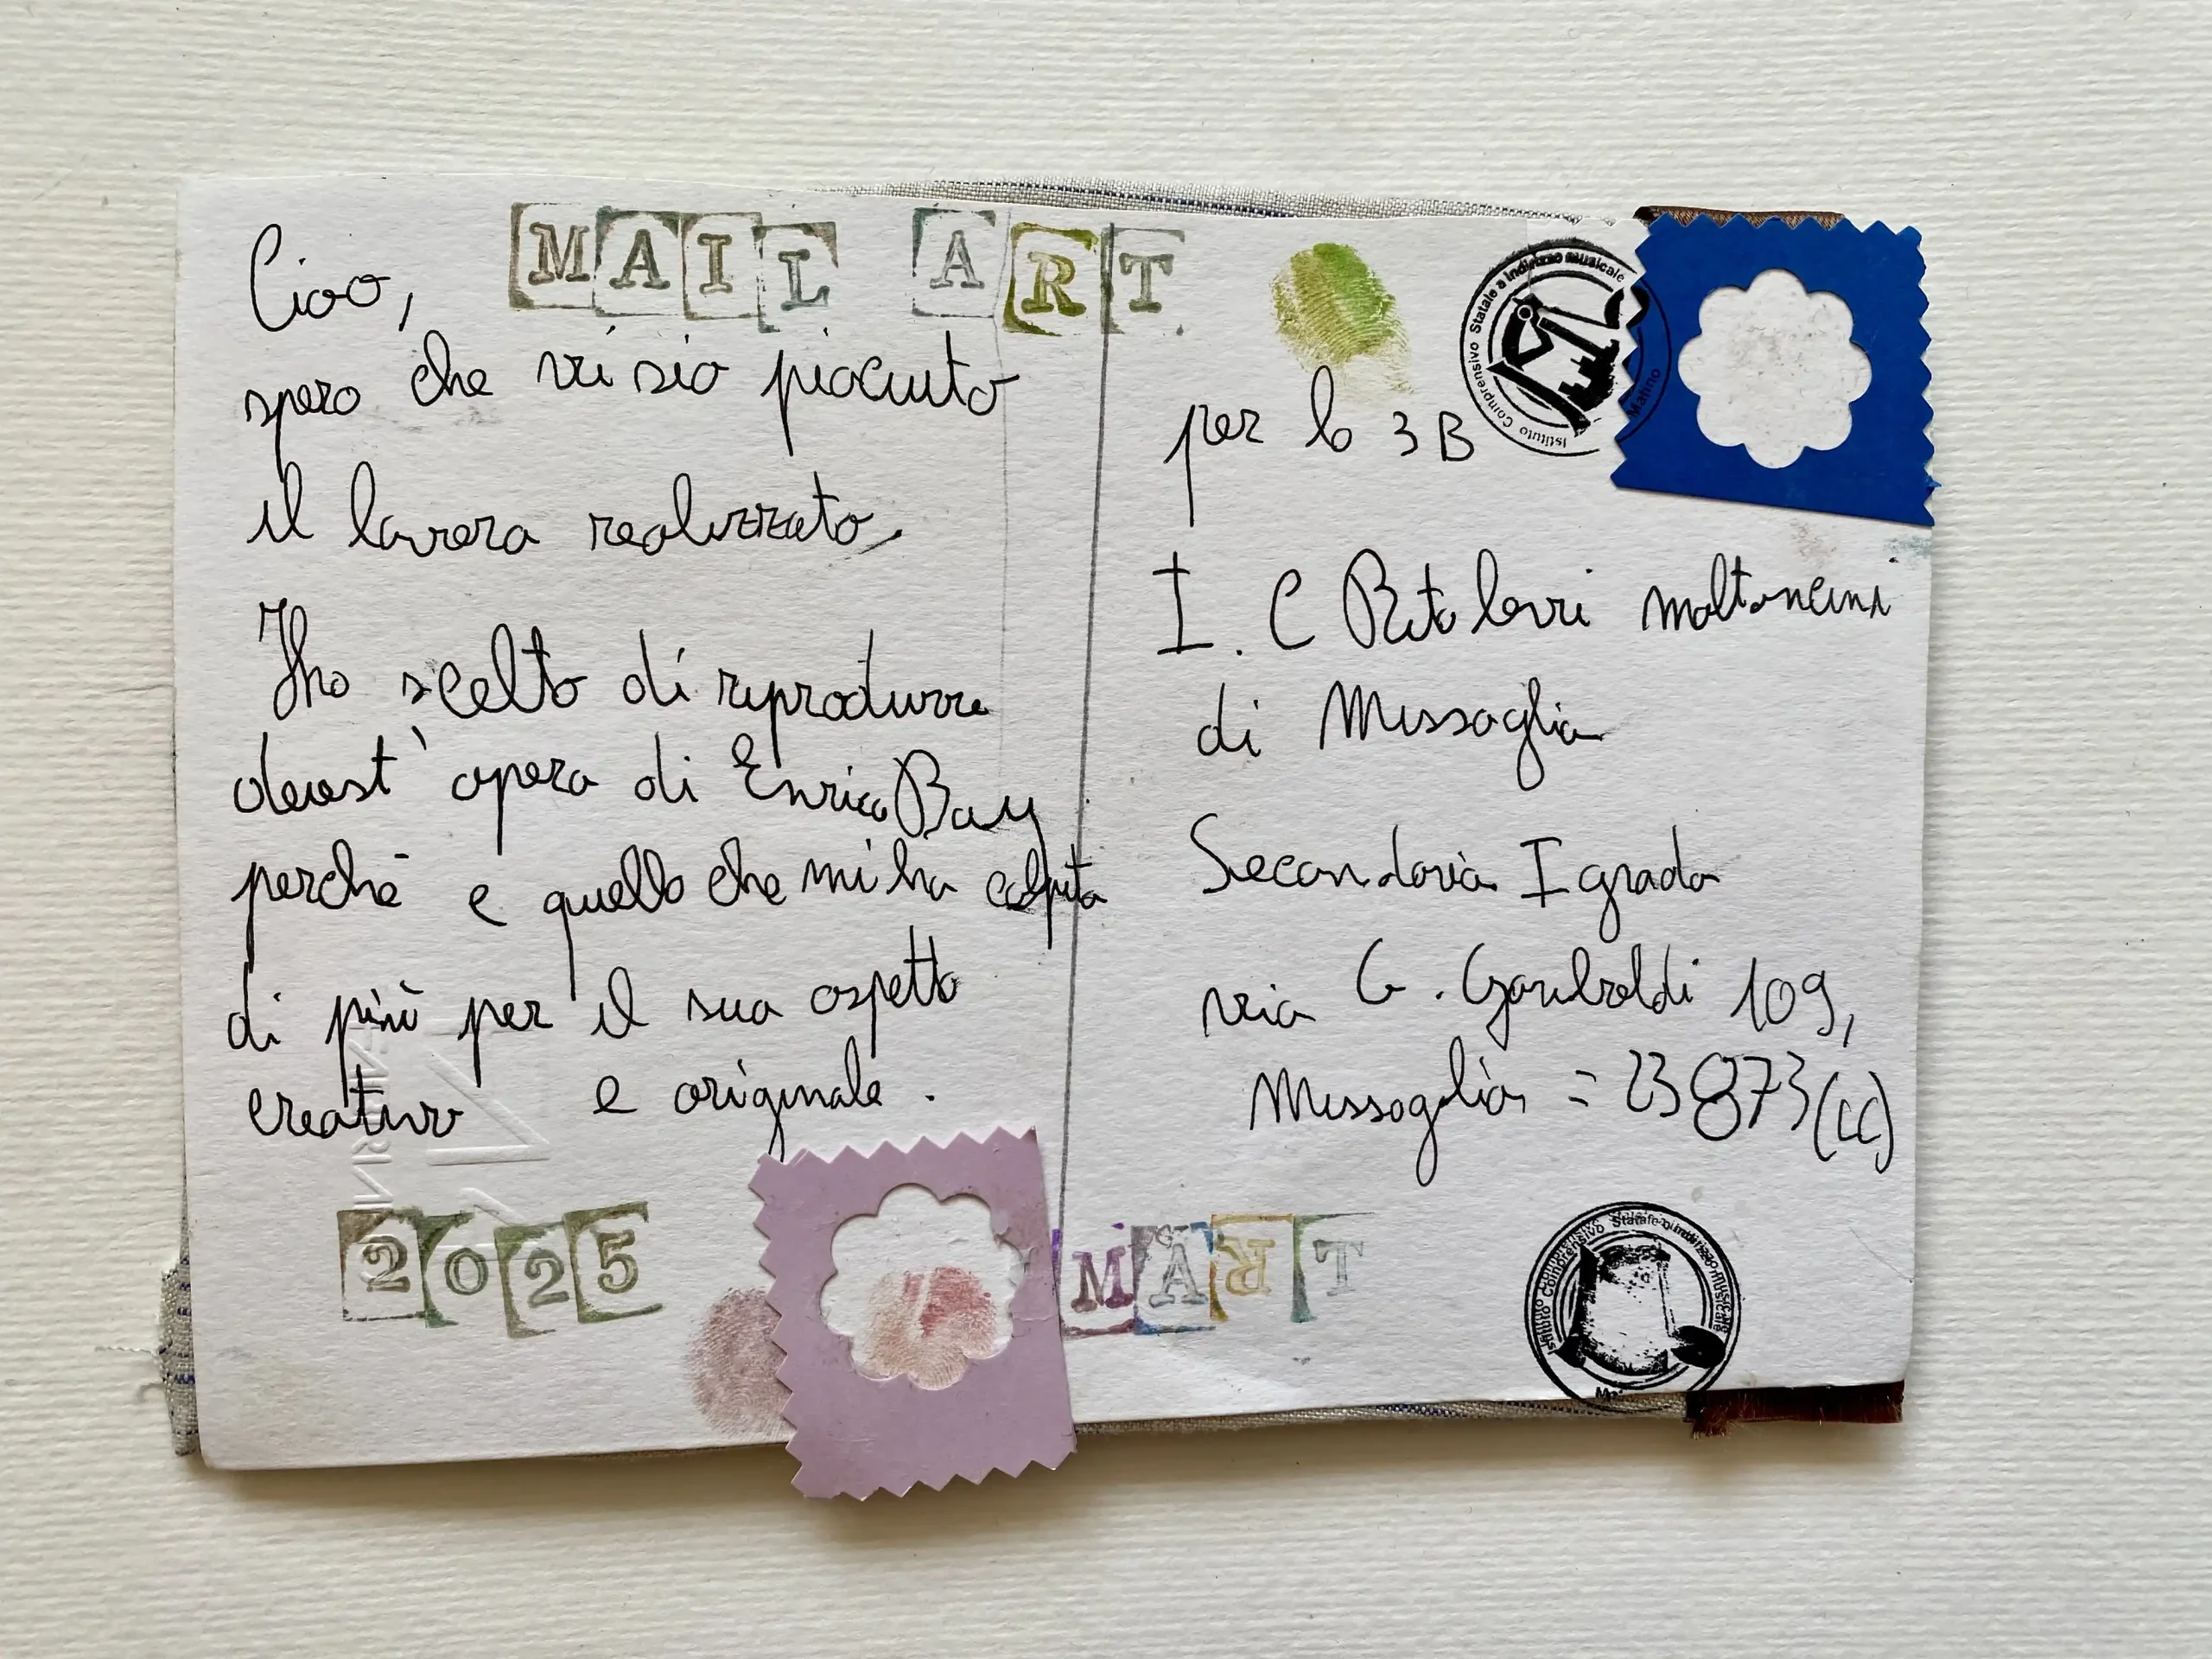 MAIL ART
Ciao,
spero che vi sia piaciuto
il lavoro realizzato.
Ho scelto di riprodurre
quest' opera di Enrico Bay
perchè e quello che mi ha colpito
di più per il suo aspetto
creativo e originale.
2025
per la 3B
I. C Rita Levi Montalcini
di Missaglia
Secondaria I grado
via G. Garibaldi 109,
Missaglia = 23873 (LC)
MART
Istituto Comprensivo Statale a Indirizzo Musicale
Istituto Comprensivo Statale